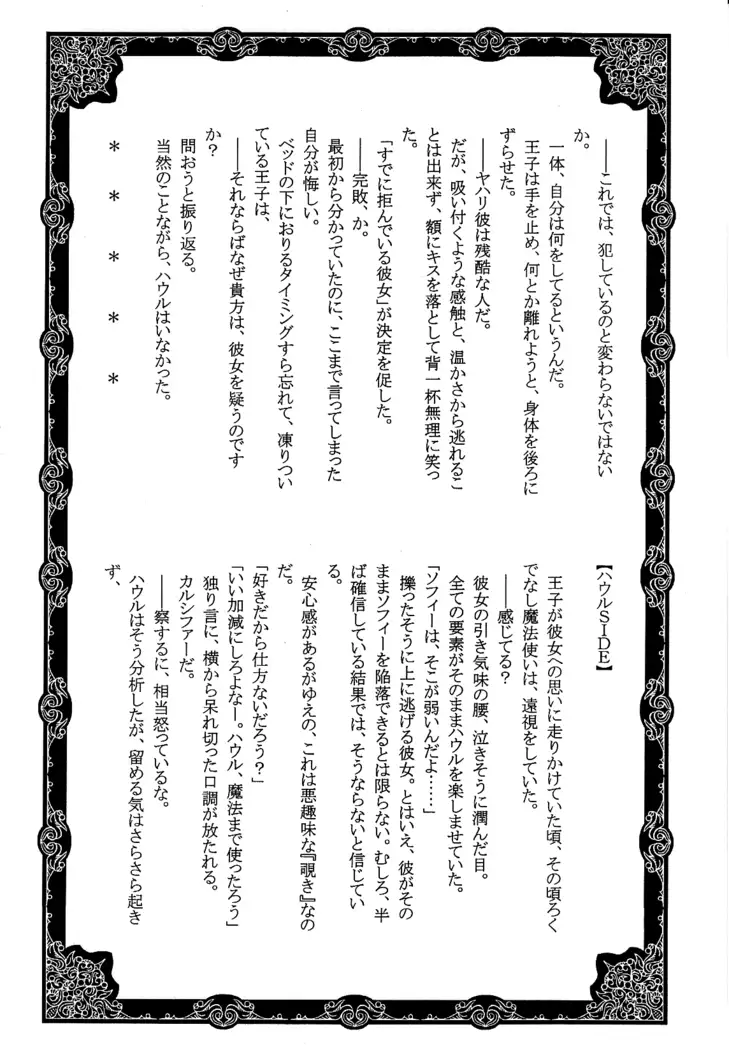 ――これでは、犯しているのと変わらないではない
か。
一体、自分は何をしてるというんだ。
王子は手を止め、何とか離れようと、身体を後ろに
ずらせた。
――ヤハリ彼は残酷な人だ。
だが、吸い付くような感触と、温かさから逃れるこ
とは出来ず、額にキスを落として背一杯無理に笑っ
た。
「すでに拒んでいる彼女」が決定を促した。
――完敗、か。
最初から分かっていたのに、ここまで言ってしまった
自分が悔しい。
ベッドの下におりるタイミングすら忘れて、凍りつい
ている王子は、
――それならばなぜ貴方は、彼女を疑うのです
か？
問おうと振り返る。
当然のことながら、ハウルはいなかった。
＊　＊　＊　＊　＊
【ハウルSIDE】
王子が彼女への思いに走りかけていた頃、その頃ろく
でなし魔法使いは、遠視をしていた。
――感じてる？
彼女の引き気味の腰、泣きそうに潤んだ目。
全ての要素がそのままハウルを楽しませていた。
「ソフィーは、そこが弱いんだよ……」
擽ったそうに上に逃げる彼女。とはいえ、彼がその
ままソフィーを陥落できるとは限らない。むしろ、半
ば確信している結果では、そうならないと信じてい
る。
安心感があるがゆえの、これは悪趣味な『覗き』なの
だ。
「好きだから仕方ないだろう？」
「いい加減にしろよなー。ハウル、魔法まで使ったろう」
独り言に、横から呆れ切った口調が放たれる。
カルシファーだ。
――察するに、相当怒っているな。
ハウルはそう分析したが、留める気はさらさら起き
ず、